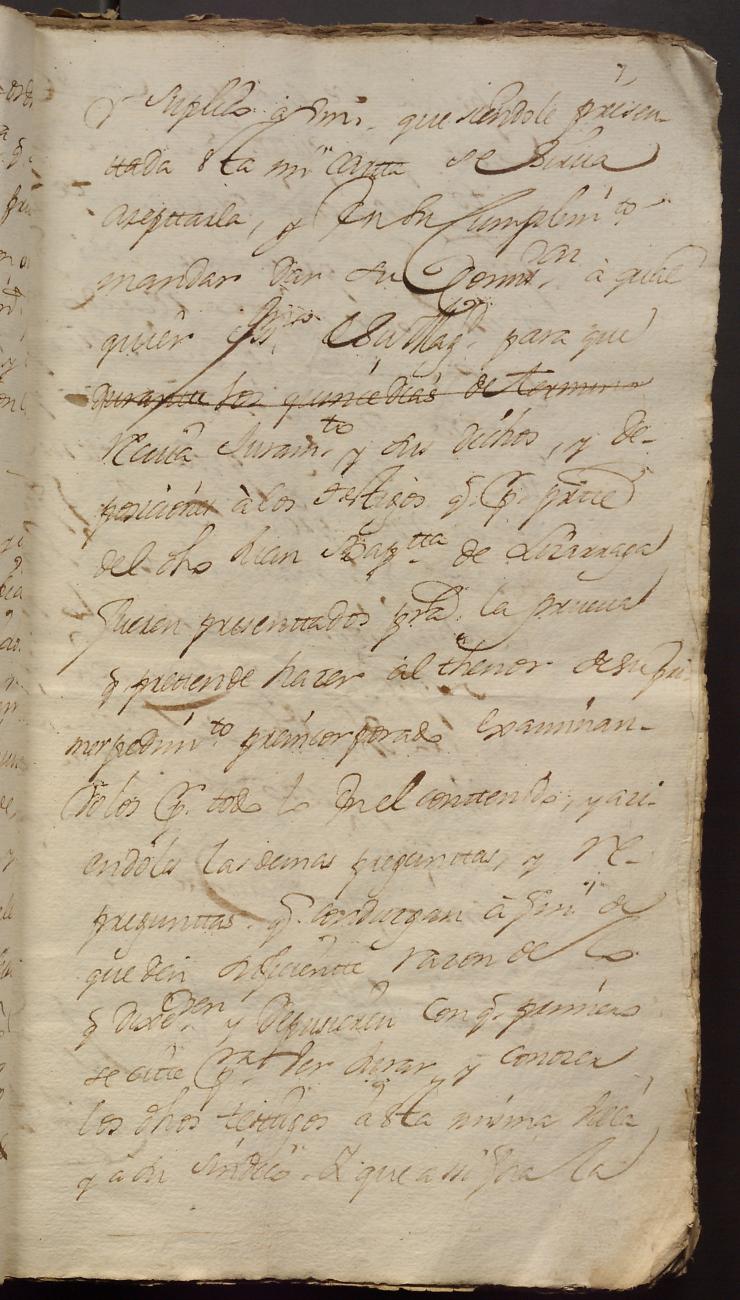 Y suplico a Vm. que siendole presen-
ttada esta mi cartta se sirva
azepttarla, y en su cumplim.to
mandar dar su Comis.on à qual
quier ess.no de su Mag.d para que
durantte los quince dias de termino
reciva Juram.to y sus dichos, y de-
posiciones à los testigos q. p. partte
del dho Juan Bap.tta de Lizarraga
fueren presenttados para la prueva
q prettende hazer al thenor de su pri
mer pedim.to preincorporado examinan-
dolos p. todo lo en el conttenido, y aci-
endoles las demas pregunttas, y re-
pregunttas q. conduzgan à fin de
que den suficientte razon de lo
q dixeren y depusieren con q. primero
se citte para ver jurar, y conozer
los dhos testtigos à estta misma
y à su sindico. Y que asi sea la